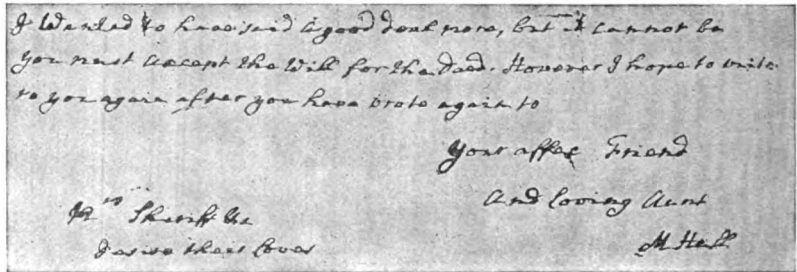 I Wanted to have said a good deal more, but it cannot be
you must accept the Will for the Deed. However I hope to write
to you again after you have wrote again to
Your affec Friend
And loving Aunt
M Hall
Sheriff &c
desire their loves